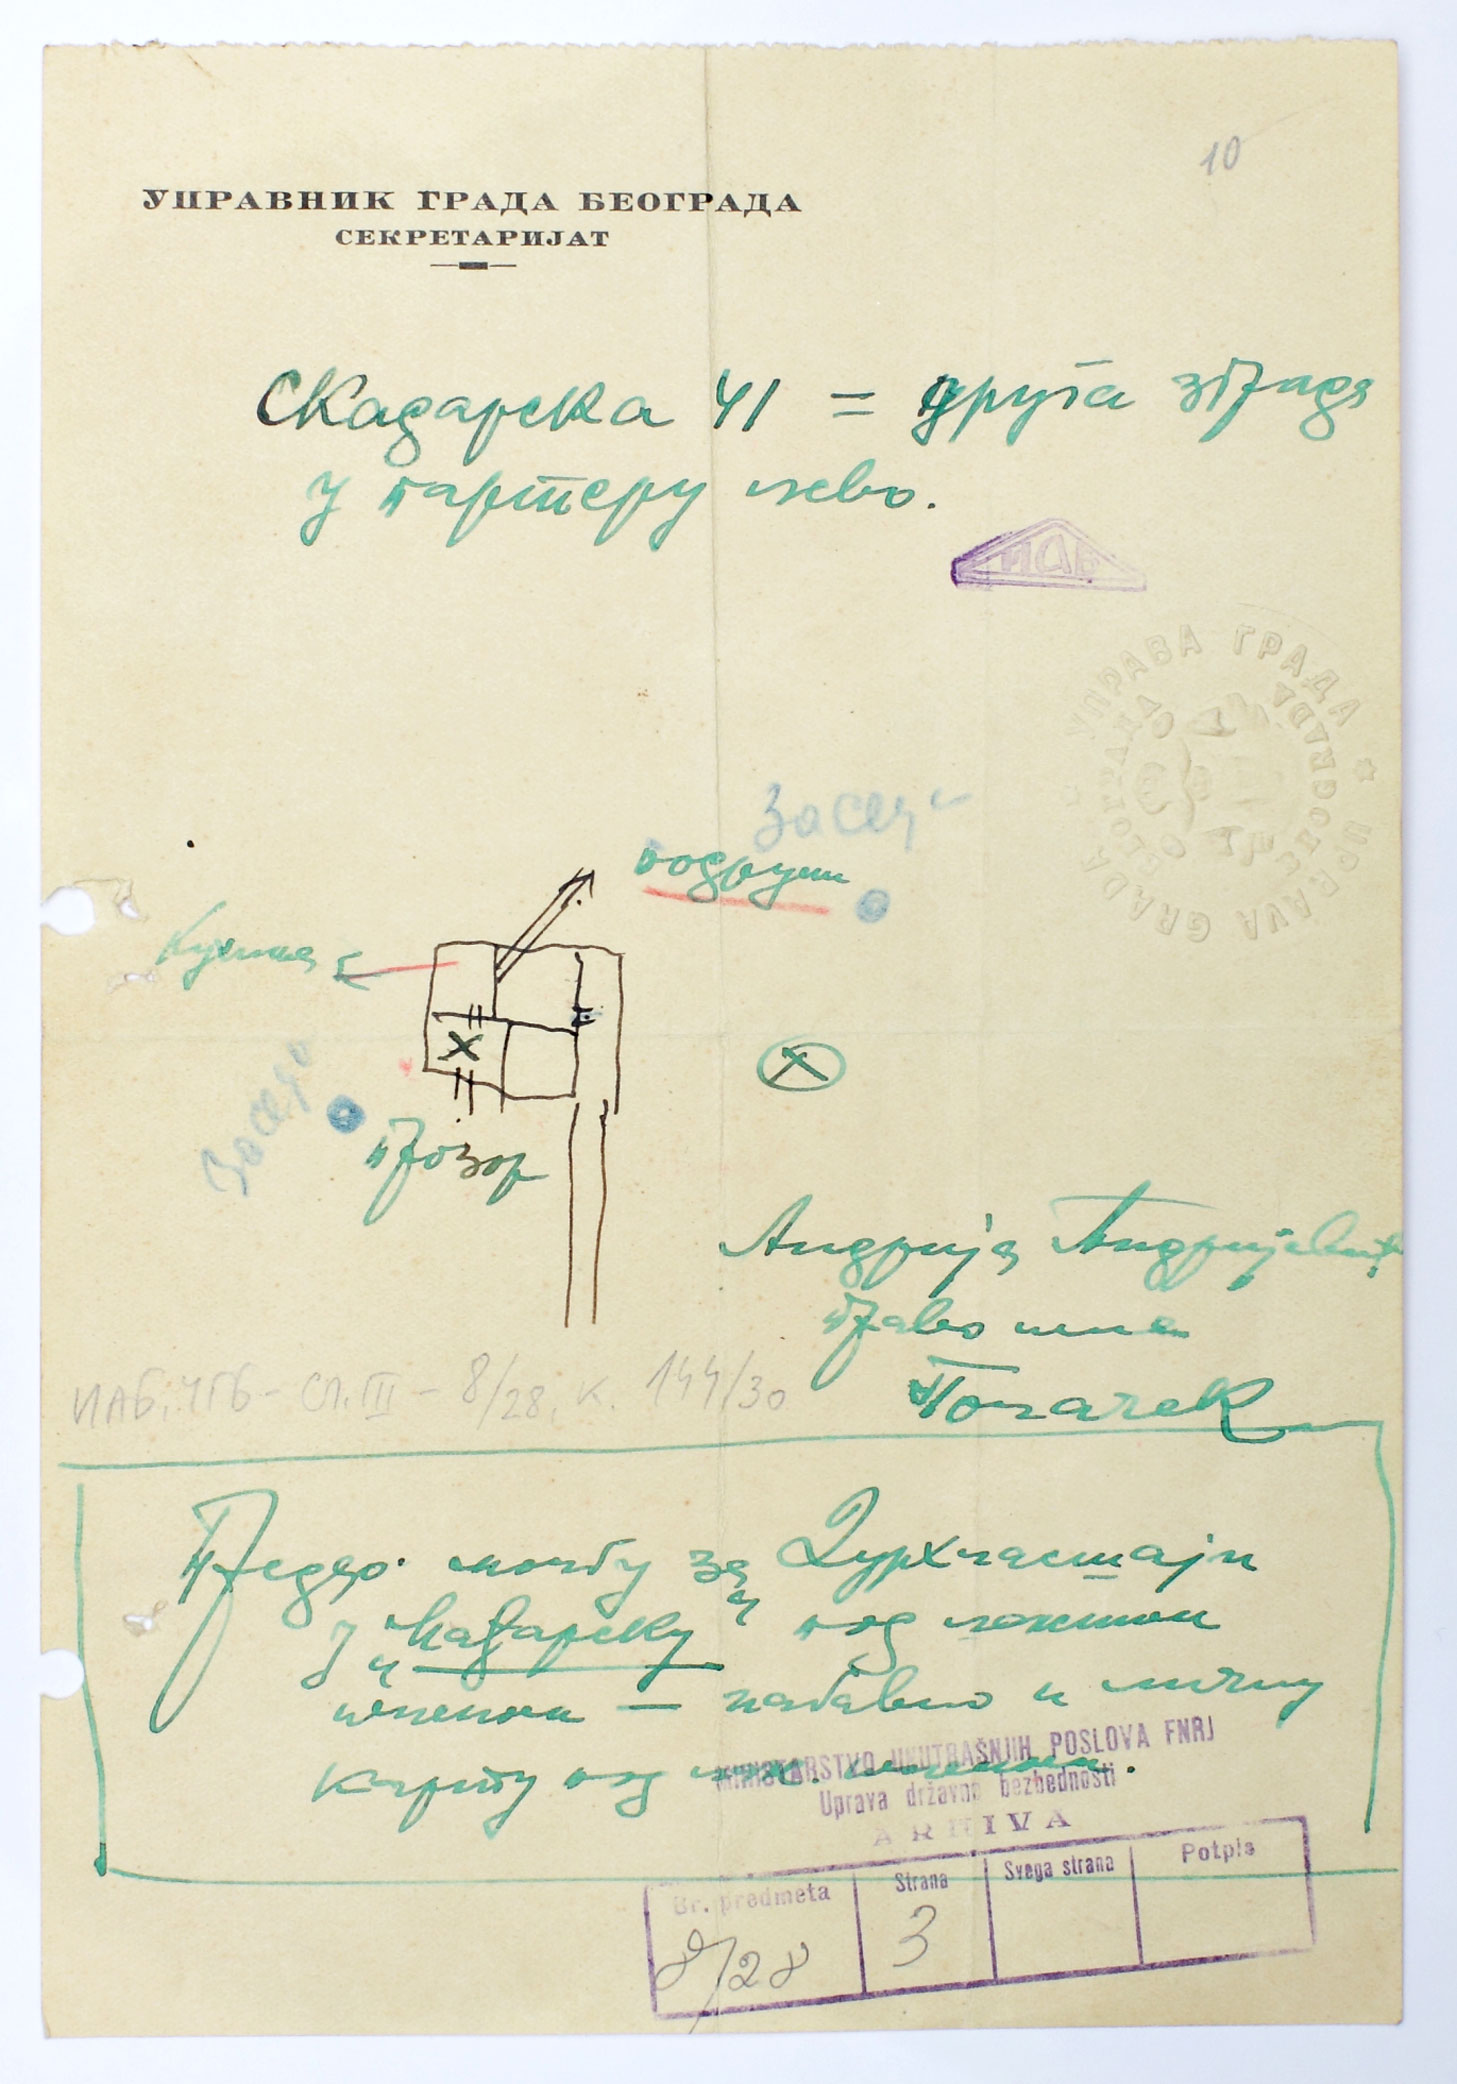 10
УПРАВНИК ГРАДА БЕОГРАДА
СЕКРЕТАРИЈАТ
Скадарска 41 = друга зграда
у партеру лево.
ИАБ
УПРАВА ГРАДА БЕОГРАДА
UPRAVA GRADA BEOGRADA
Заседа
подрум
Кујна
X
Заседа
прозор
Андрија Андријевић
право име
ИАБ, УГБ - Сл. III - 8/28, к. 144/30
молбу за Дурхластајн
у Мађарску под
именом — набавио и личну
карту под
MINISTARSTVO UNUTRAŠNJIH POSLOVA FNRJ
Uprava državne bezbednosti
ARHIVA
Br. predmeta
Strana
Svega strana
Potpis
8/28
3